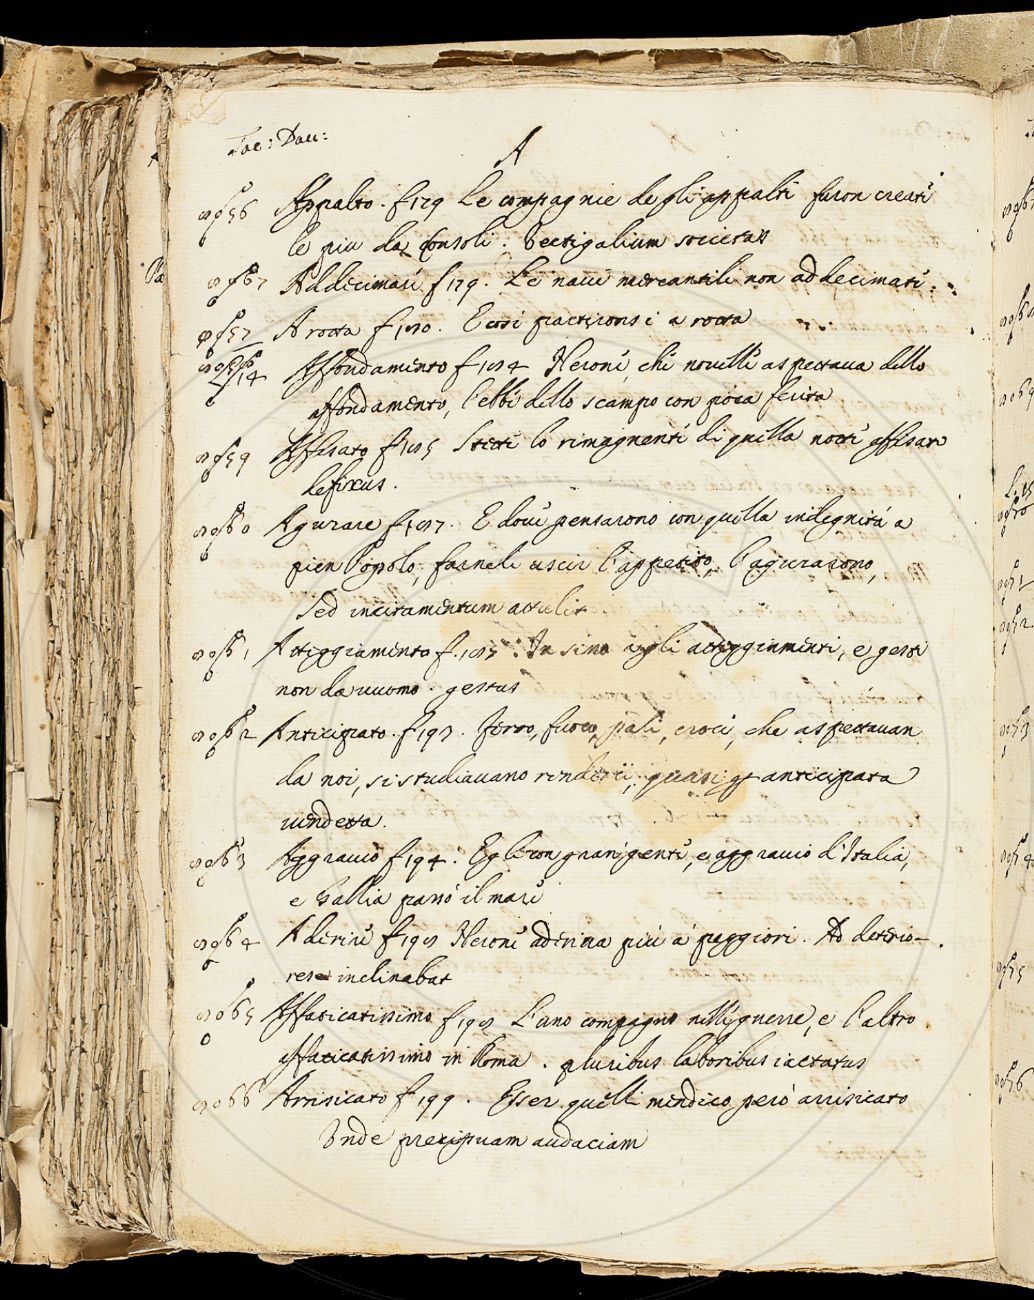 Tac: Dau:
A
Appalto. f 179 Le compagnie degli appalti furon creati
le piu da Consoli. Vectigalium societas
Addecimati f 179. Le naui mercantili non addecimati.
A rotta f 180. E cosi partironsi a rotta
Affondamento f 184 Nerone, che nouelle aspettaua dello
affondamento, l'ebbe dello scampo con poca ferita
Affisato f 185 Stette lo rimagnente di quella notte affisato
defixus.
Agurare f 187. E doue pensarono con quella indegnità a
pien Popolo, farneli uscir l'appetito, l'agurarono,
sed incitamentum attulit
Atteggiamento f. 187. In sino agli atteggiamenti, e gesti
non da uuomo. gestus
Anticipato. f 193. Ferro, fuoco, pali, croci, che aspettauan
da noi, si studiauano renderci, quasi anticipata
uendetta.
Aggrauio f 194. Egli con gran gente, e aggrauio d'Italia,
e Gallia passò il mare
Aderire f 198 Nerone aderiua più a' peggiori. Ad deterio-
res inclinabat
Affaticatissimo f 198 L'uno compagno nelle guerre, e l'altro
affaticatissimo in Roma. pluribus laboribus iactatus
Arrisicato f 199. Esser quelli mendico però arrisicato
Vnde precipuam audaciam